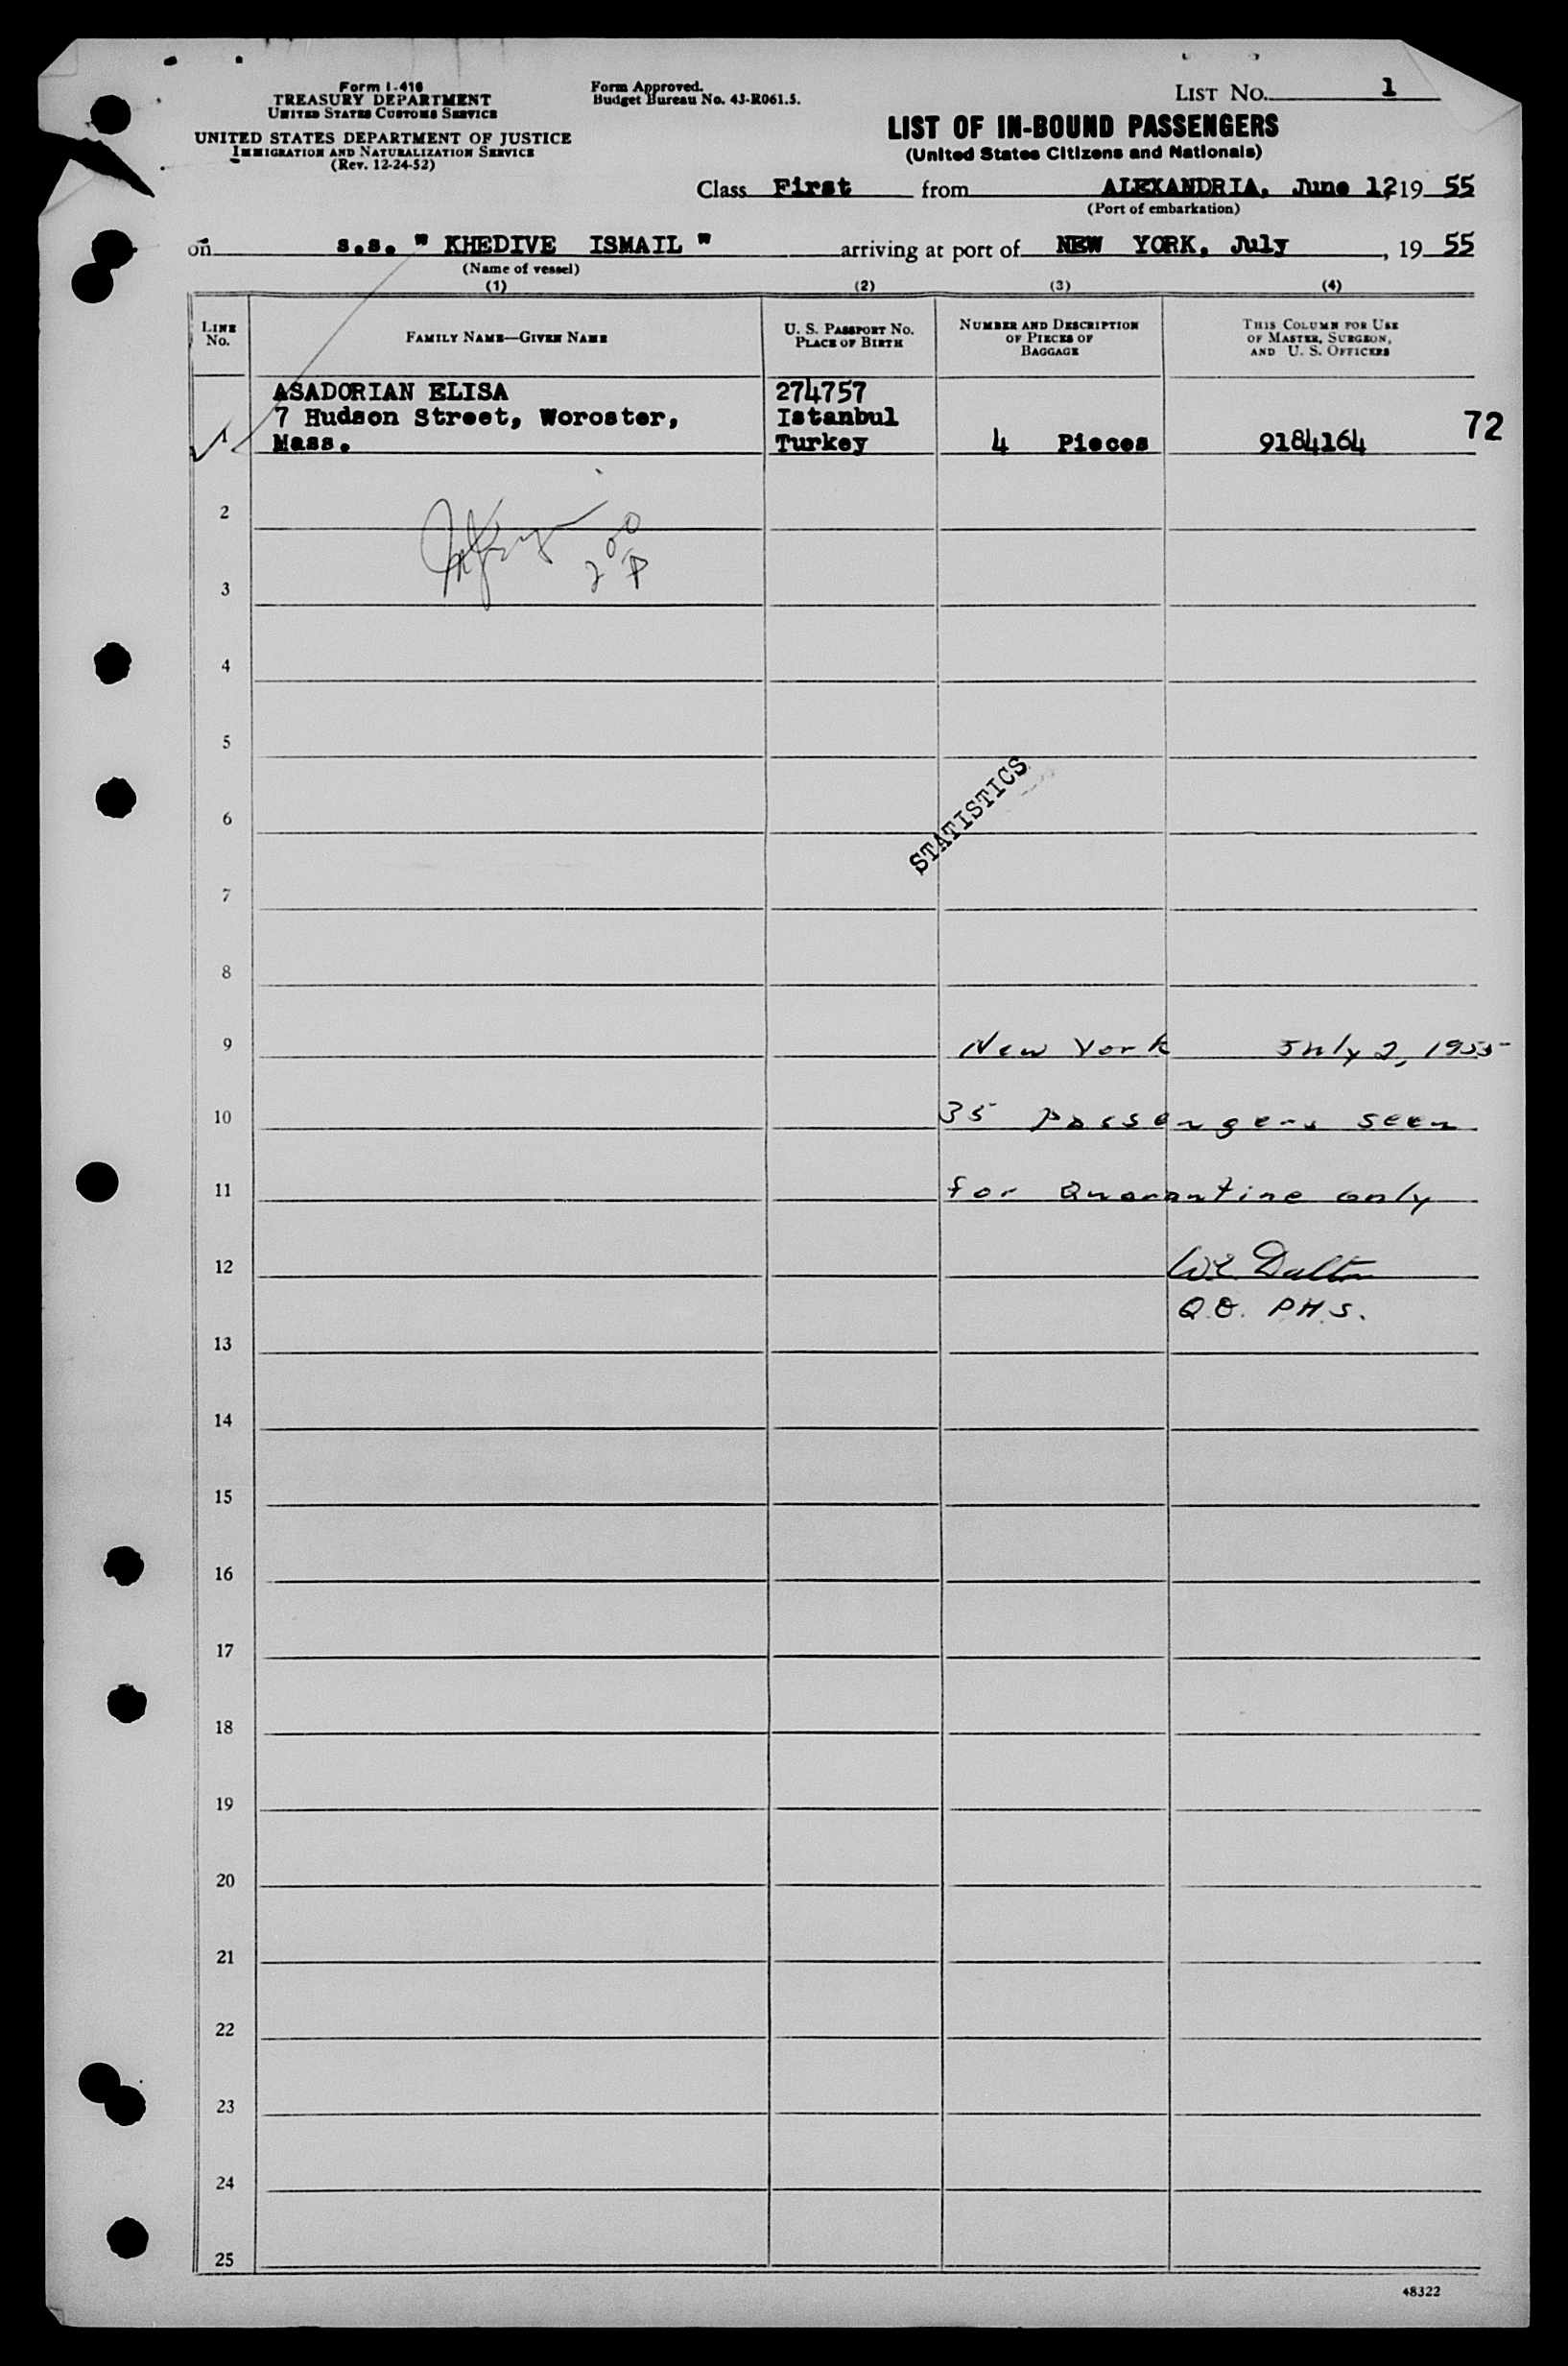 Form I-416
TREASURY DEPARTMENT
UNITED STATES CUSTOMS SERVICE
UNITED STATES DEPARTMENT OF JUSTICE
IMMIGRATION AND NATURALIZATION SERVICE
(Rev. 12-24-52)
Form Approved.
Budget Bureau No. 43-R061.5.
LIST NO. 1
LIST OF IN-BOUND PASSENGERS
(United States Citizens and Nationals)
Class First from ALEXANDRIA, June 12, 19 55
(Port of embarkation)
on s.s. " KHEDIVE ISMAIL " arriving at port of NEW YORK, July , 19 55
(Name of vessel)
(1) (2) (3) (4)
LINE No.
FAMILY NAME—GIVEN NAME
U. S. PASSPORT NO.
PLACE OF BIRTH
NUMBER AND DESCRIPTION
OF PIECES OF
BAGGAGE
THIS COLUMN FOR USE
OF MASTER, SURGEON,
AND U. S. OFFICERS
ASADORIAN ELISA 274757
7 Hudson Street, Woroster, Istanbul 72
1 Mass. Turkey 4 Pieces 9184164
2
200
P
3
4
5
STATISTICS
6
7
8
9 New York July 2, 1955
10 35 passengers seen
11 for Quarantine only
12 W.E. Dalton
Q.O. P.H.S.
13
14
15
16
17
18
19
20
21
22
23
24
25
48322